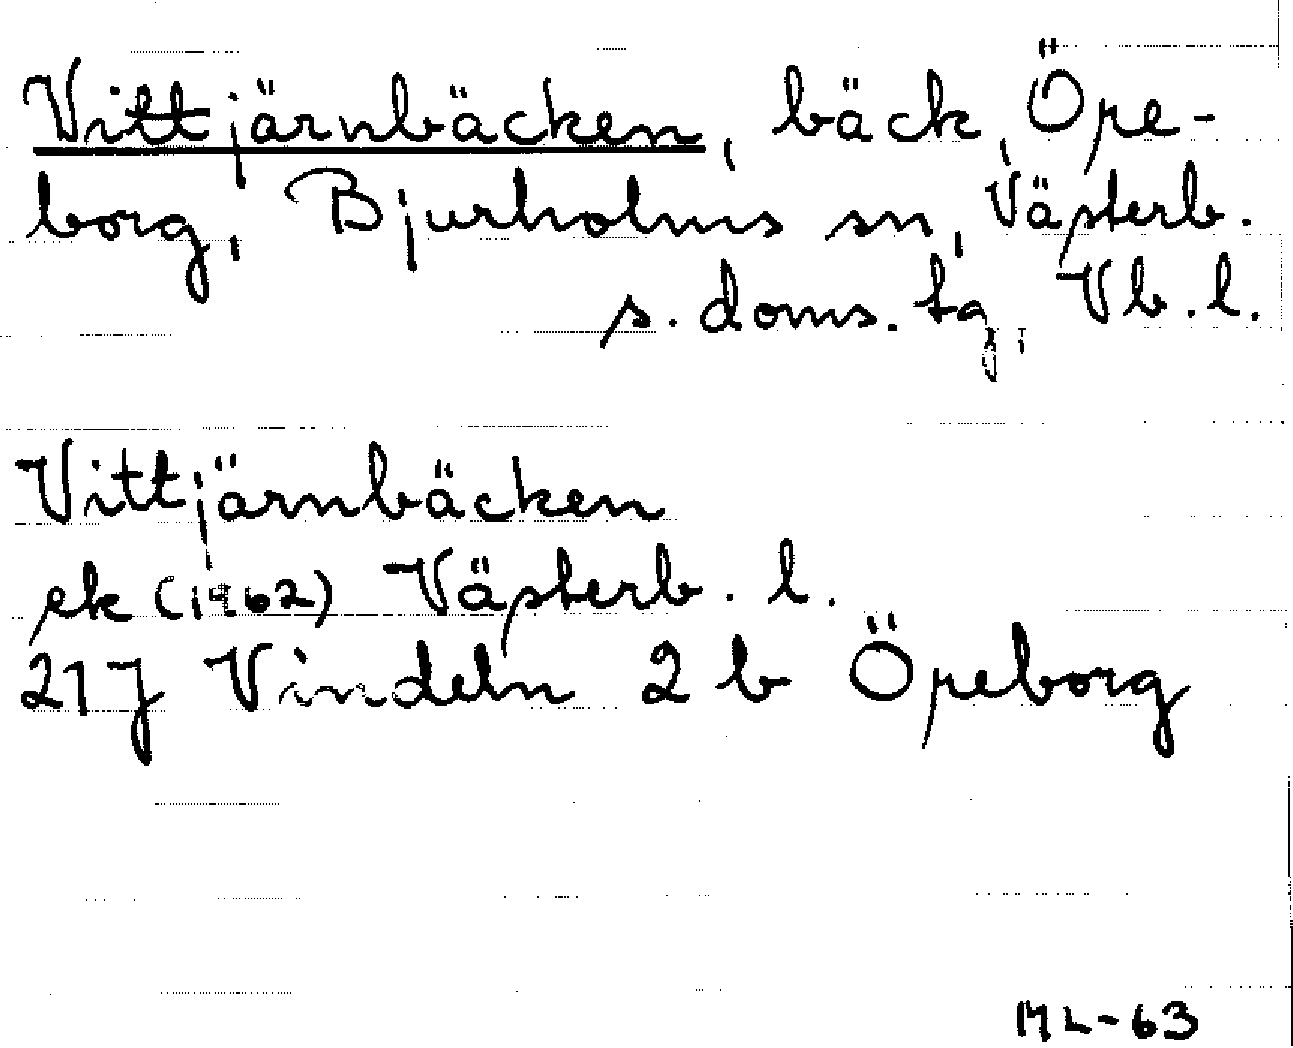 Vittjärnbäcken, bäck, Öre-
borg, Bjurholms sn, Västerb.
s. doms. tg, Vb. l.
Vittjärnbäcken
ek (1962) Västerb. l.
21J Vindeln 2 b Öreborg
ML-63